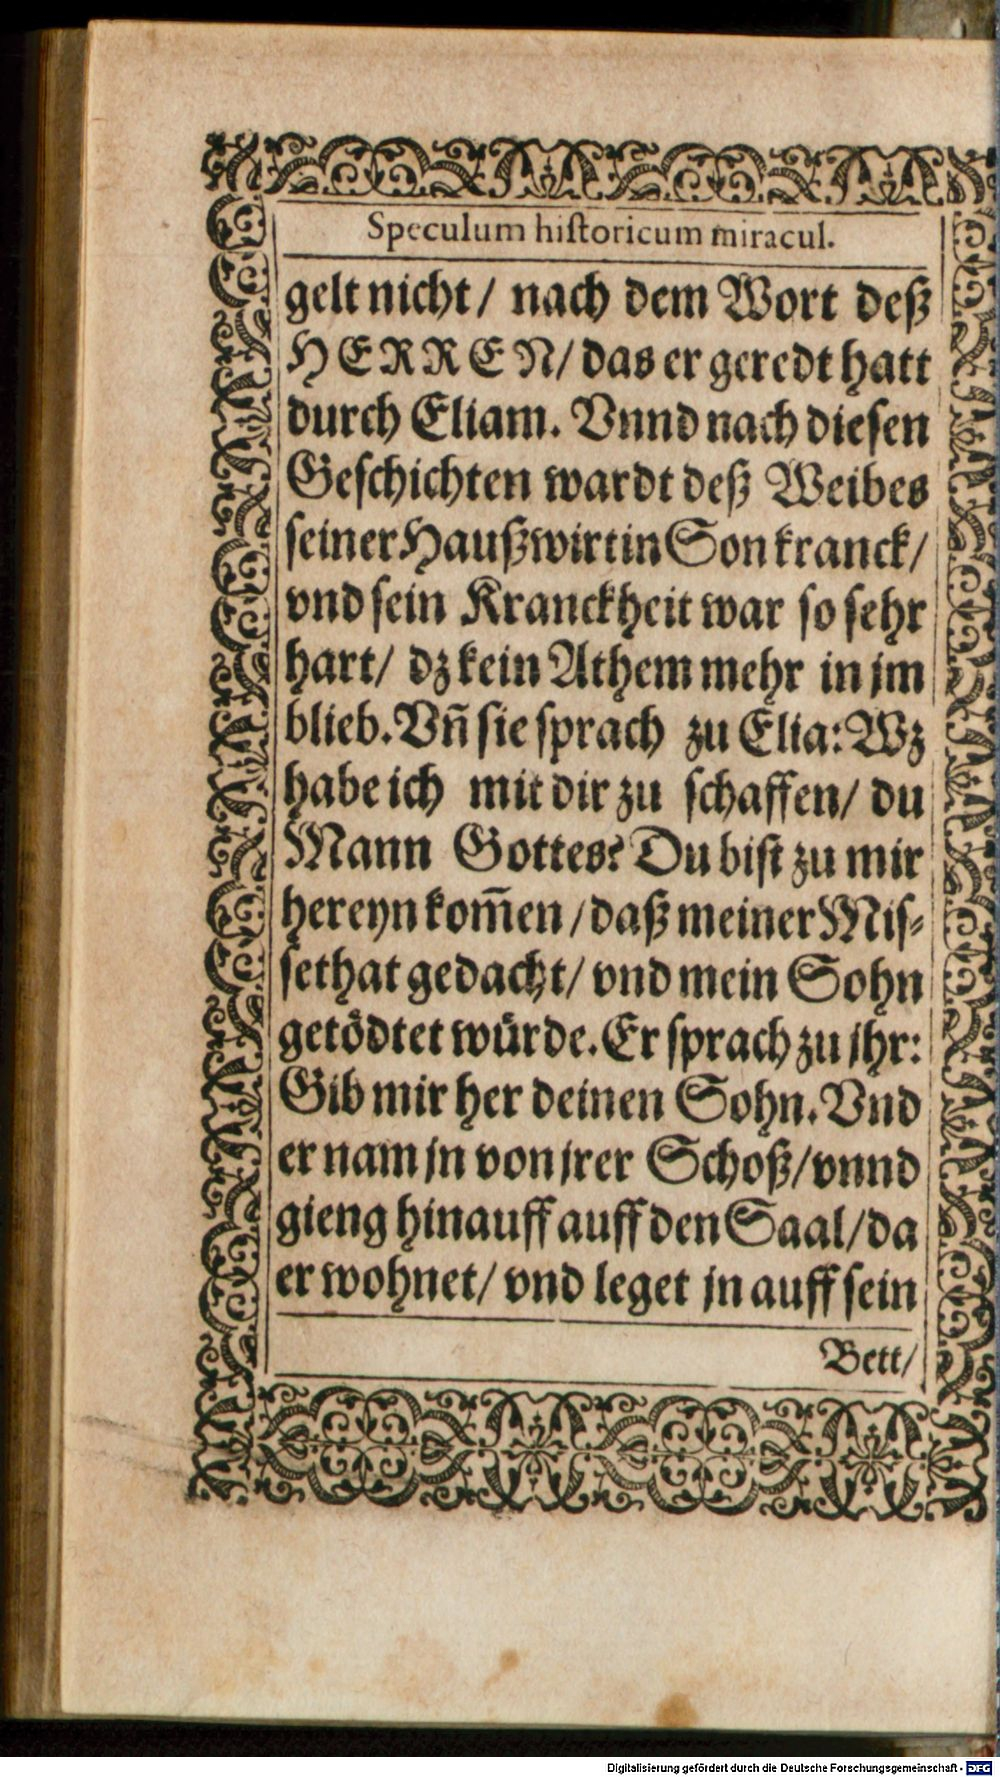 Speculum hiſtoricum miracul.
gelt nicht / nach dem Wort deß
HERREN / das er geredt hatt
durch Eliam. Vnnd nach dieſen
Geſchichten wardt deß Weibes
ſeiner Haußwirtin Son kranck /
vnd ſein Kranckheit war ſo ſehr
hart / dz kein Athem mehr in jm
blieb. Vñ ſie ſprach zu Elia: Wz
habe ich mit dir zu ſchaffen / du
Mann Gottes? Du biſt zu mir
hereyn kom̃en / daß meiner Miſ⸗
ſethat gedacht / vnd mein Sohn
getoͤdtet wuͤrde. Er ſprach zu jhr:
Gib mir her deinen Sohn. Vnd
er nam jn von jrer Schoß / vnnd
gieng hinauff auff den Saal / da
er wohnet / vnd leget jn auff ſein
Bett /
Digitalisierung gefördert durch die Deutsche Forschungsgemeinschaft - DFG